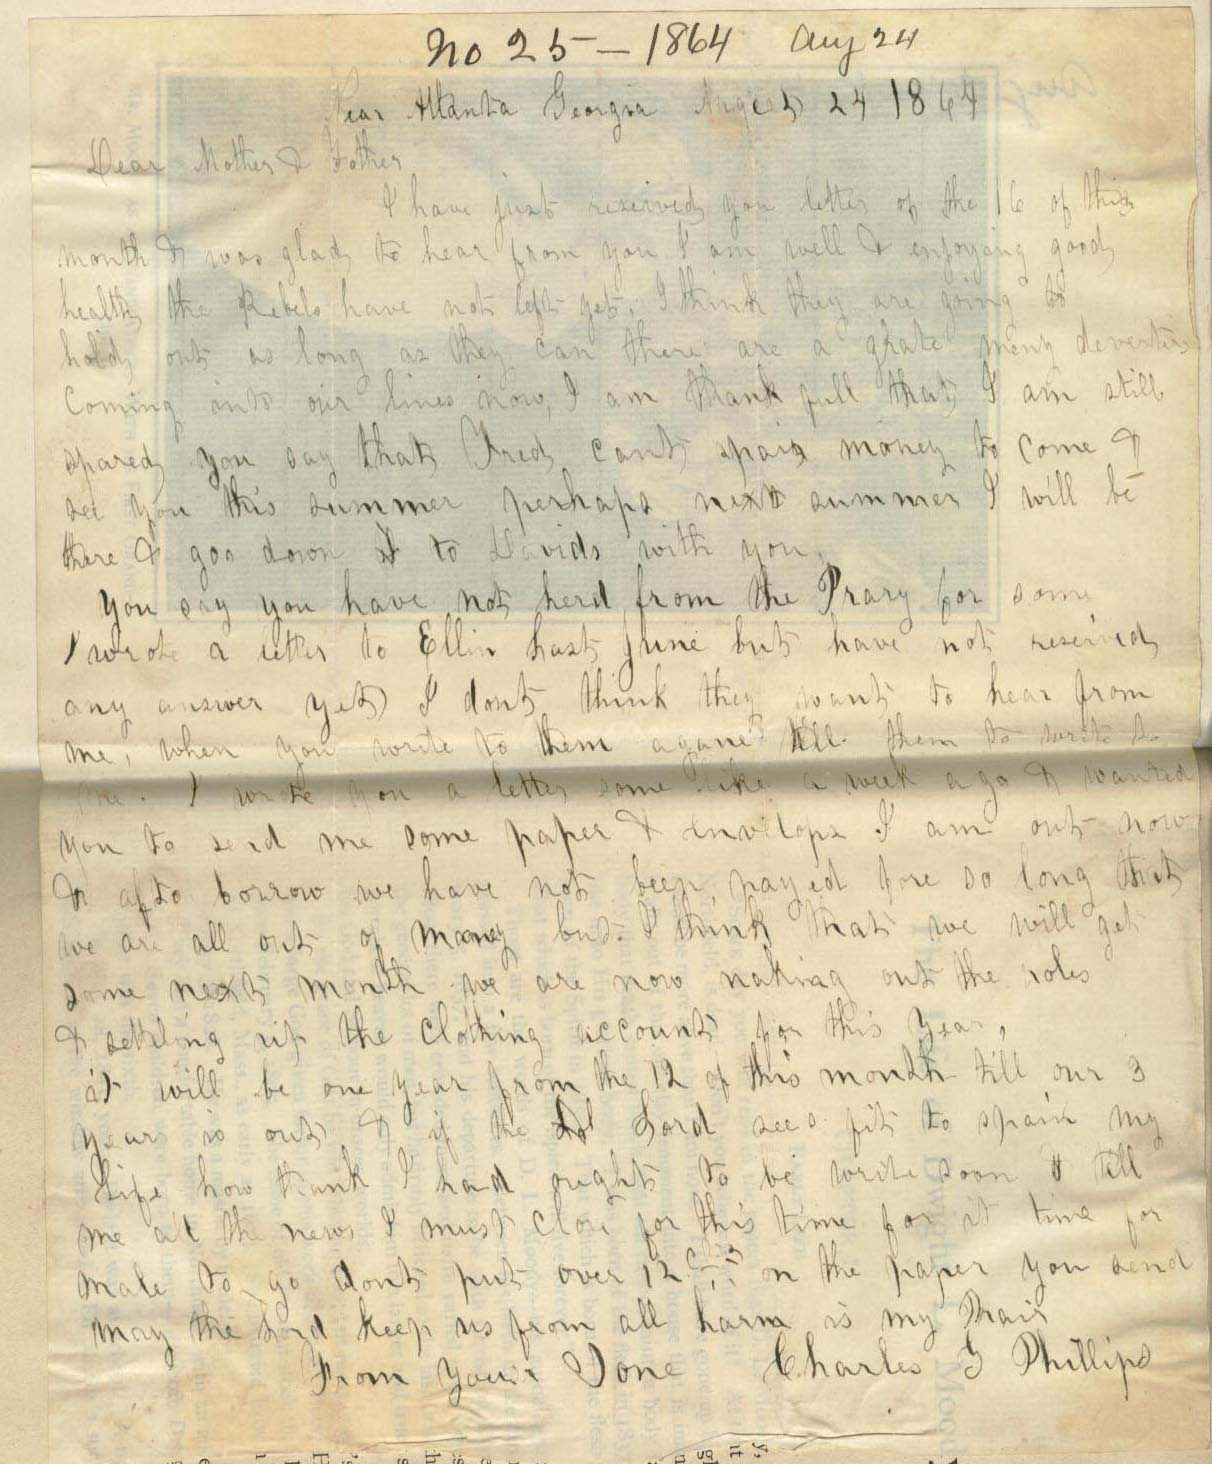 No 25 — 1864 Aug 24
Near Atlanta Georgia August 24 1864
Dear Mother & Father
I have just reseived you letter of the 16 of this
month & was glad to hear from you I am well & enjoying good
health the Rebels have not left yet, I think they are going to
hold out as long as they can there are a grate meny deserters
coming into our lines now, I am thank full that I am still
spared you say that Fred cant spair money to come &
see you this summer perhaps next summer I will be
there & goo down to Davids with you,
You say you have not herd from the Prary for some
I wrote a letter to Ellin last June but have not reseived
any answer yet I dont think they want to hear from
me, when you write to them agane tell them to write to
me. I wrote you a letter some like a week ago & wanted
you to send me some paper & envelops I am out now
& afto borrow we have not been payed fore so long that
we are all out of money but I think that we will get
some next month we are now making out the roles
& settling up the clothing accounts for this year,
it will be one year from the 12 of this month till our 3
years is out & if the Lord sees fit to spair my
life how thank I had ought to be write soon & tell
me all the news I must close for this time for it time for
male to go dont put over 12 cts on the paper you send
may the Lord keep us from all harm is my Prair
From your Sone Charles G Phillips